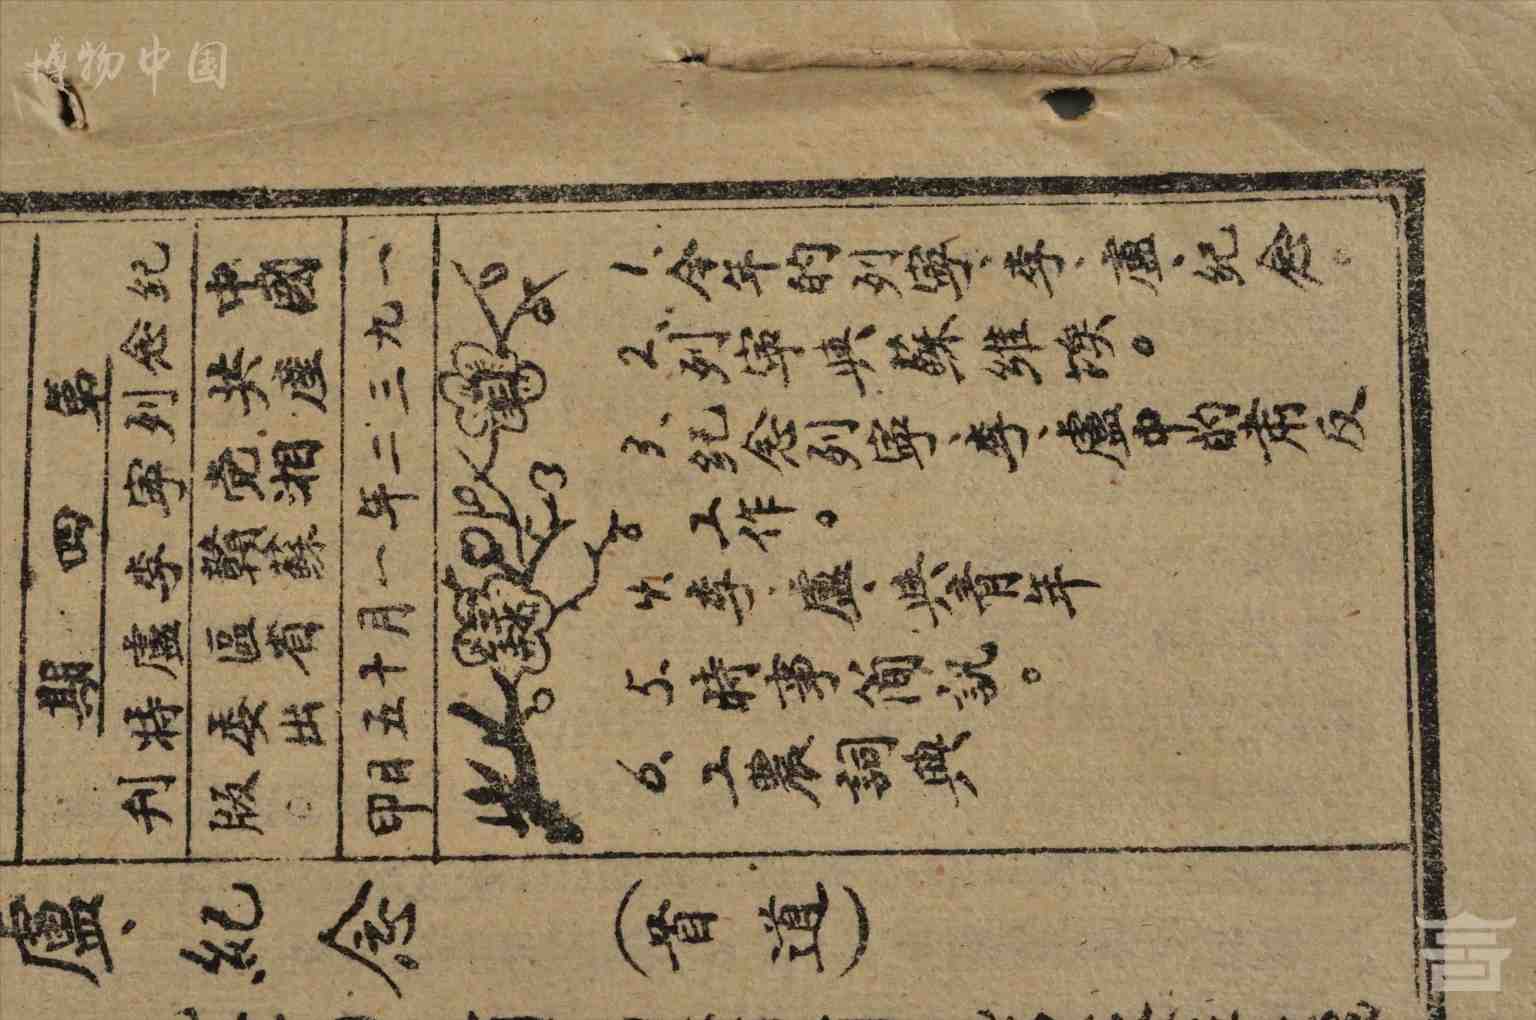 第四期
紀念列寧李盧特刊
中國共產黨湘贛蘇區省委出版。
一九三二年一月十五日印
目錄
1、今年的列寧、李、盧、紀念。
2、列寧與蘇維埃。
3、紀念列寧、李、盧中的肅反
工作。
4、李、盧、與青年
5、時事簡訊。
6、工農詞典
盧、紀念（首道）
博物中国